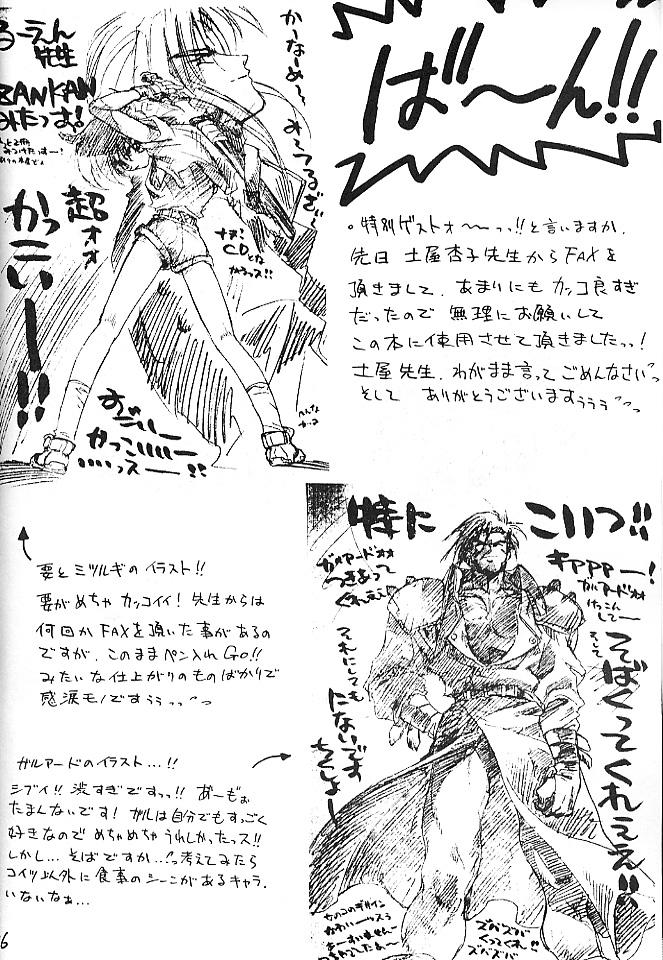 ば〜ん!!
。特別ゲストォ〜〜っっ!!と言いますか、
先日 土屋杏子先生からFAXを
頂きまして、あまりにも カッコ良すぎ
だったので 無理にお願いして
この本に使用させて頂きましたっっ!
土屋先生、わがまま言って ごめんなさいっ
そして ありがとうございますぅぅぅ
るーえん
先生
ZANKAN
みたっす!
超
ォォ
かっ
こい
ー!!
CDとな
すごい
かっこいいいー
いいっスー!!
要と ミツルギの イラスト!!
要が めちゃ カッコイイ! 先生からは
何回か FAXを頂いた事があるの
ですが、このままペン入れ Go!!
みたいな仕上がりのものばかりで
感涙モノですぅぅっっ
特に こいつ!!
ガルアードォォ
つきあって
くれぇぇ
キャアアアー!
ガルアードォォ
けっこん
してー
そして
そばくってくれええ!!
それにしても
にないです
ちくしょー
ガルアードのイラスト…!!
シブイ!! 渋すぎですっっ!! あーもぉ
たまんないです! ガルは自分でもすっごく
好きなので めちゃめちゃ うれしかったっス!!
しかし… そばですか… 考えてみたら
コイツ以外に食事のシーンがあるキャラ、
いないなぁ…
女のコのデザイン
ズバズバ
くってくれ!!
ズバズバ
6